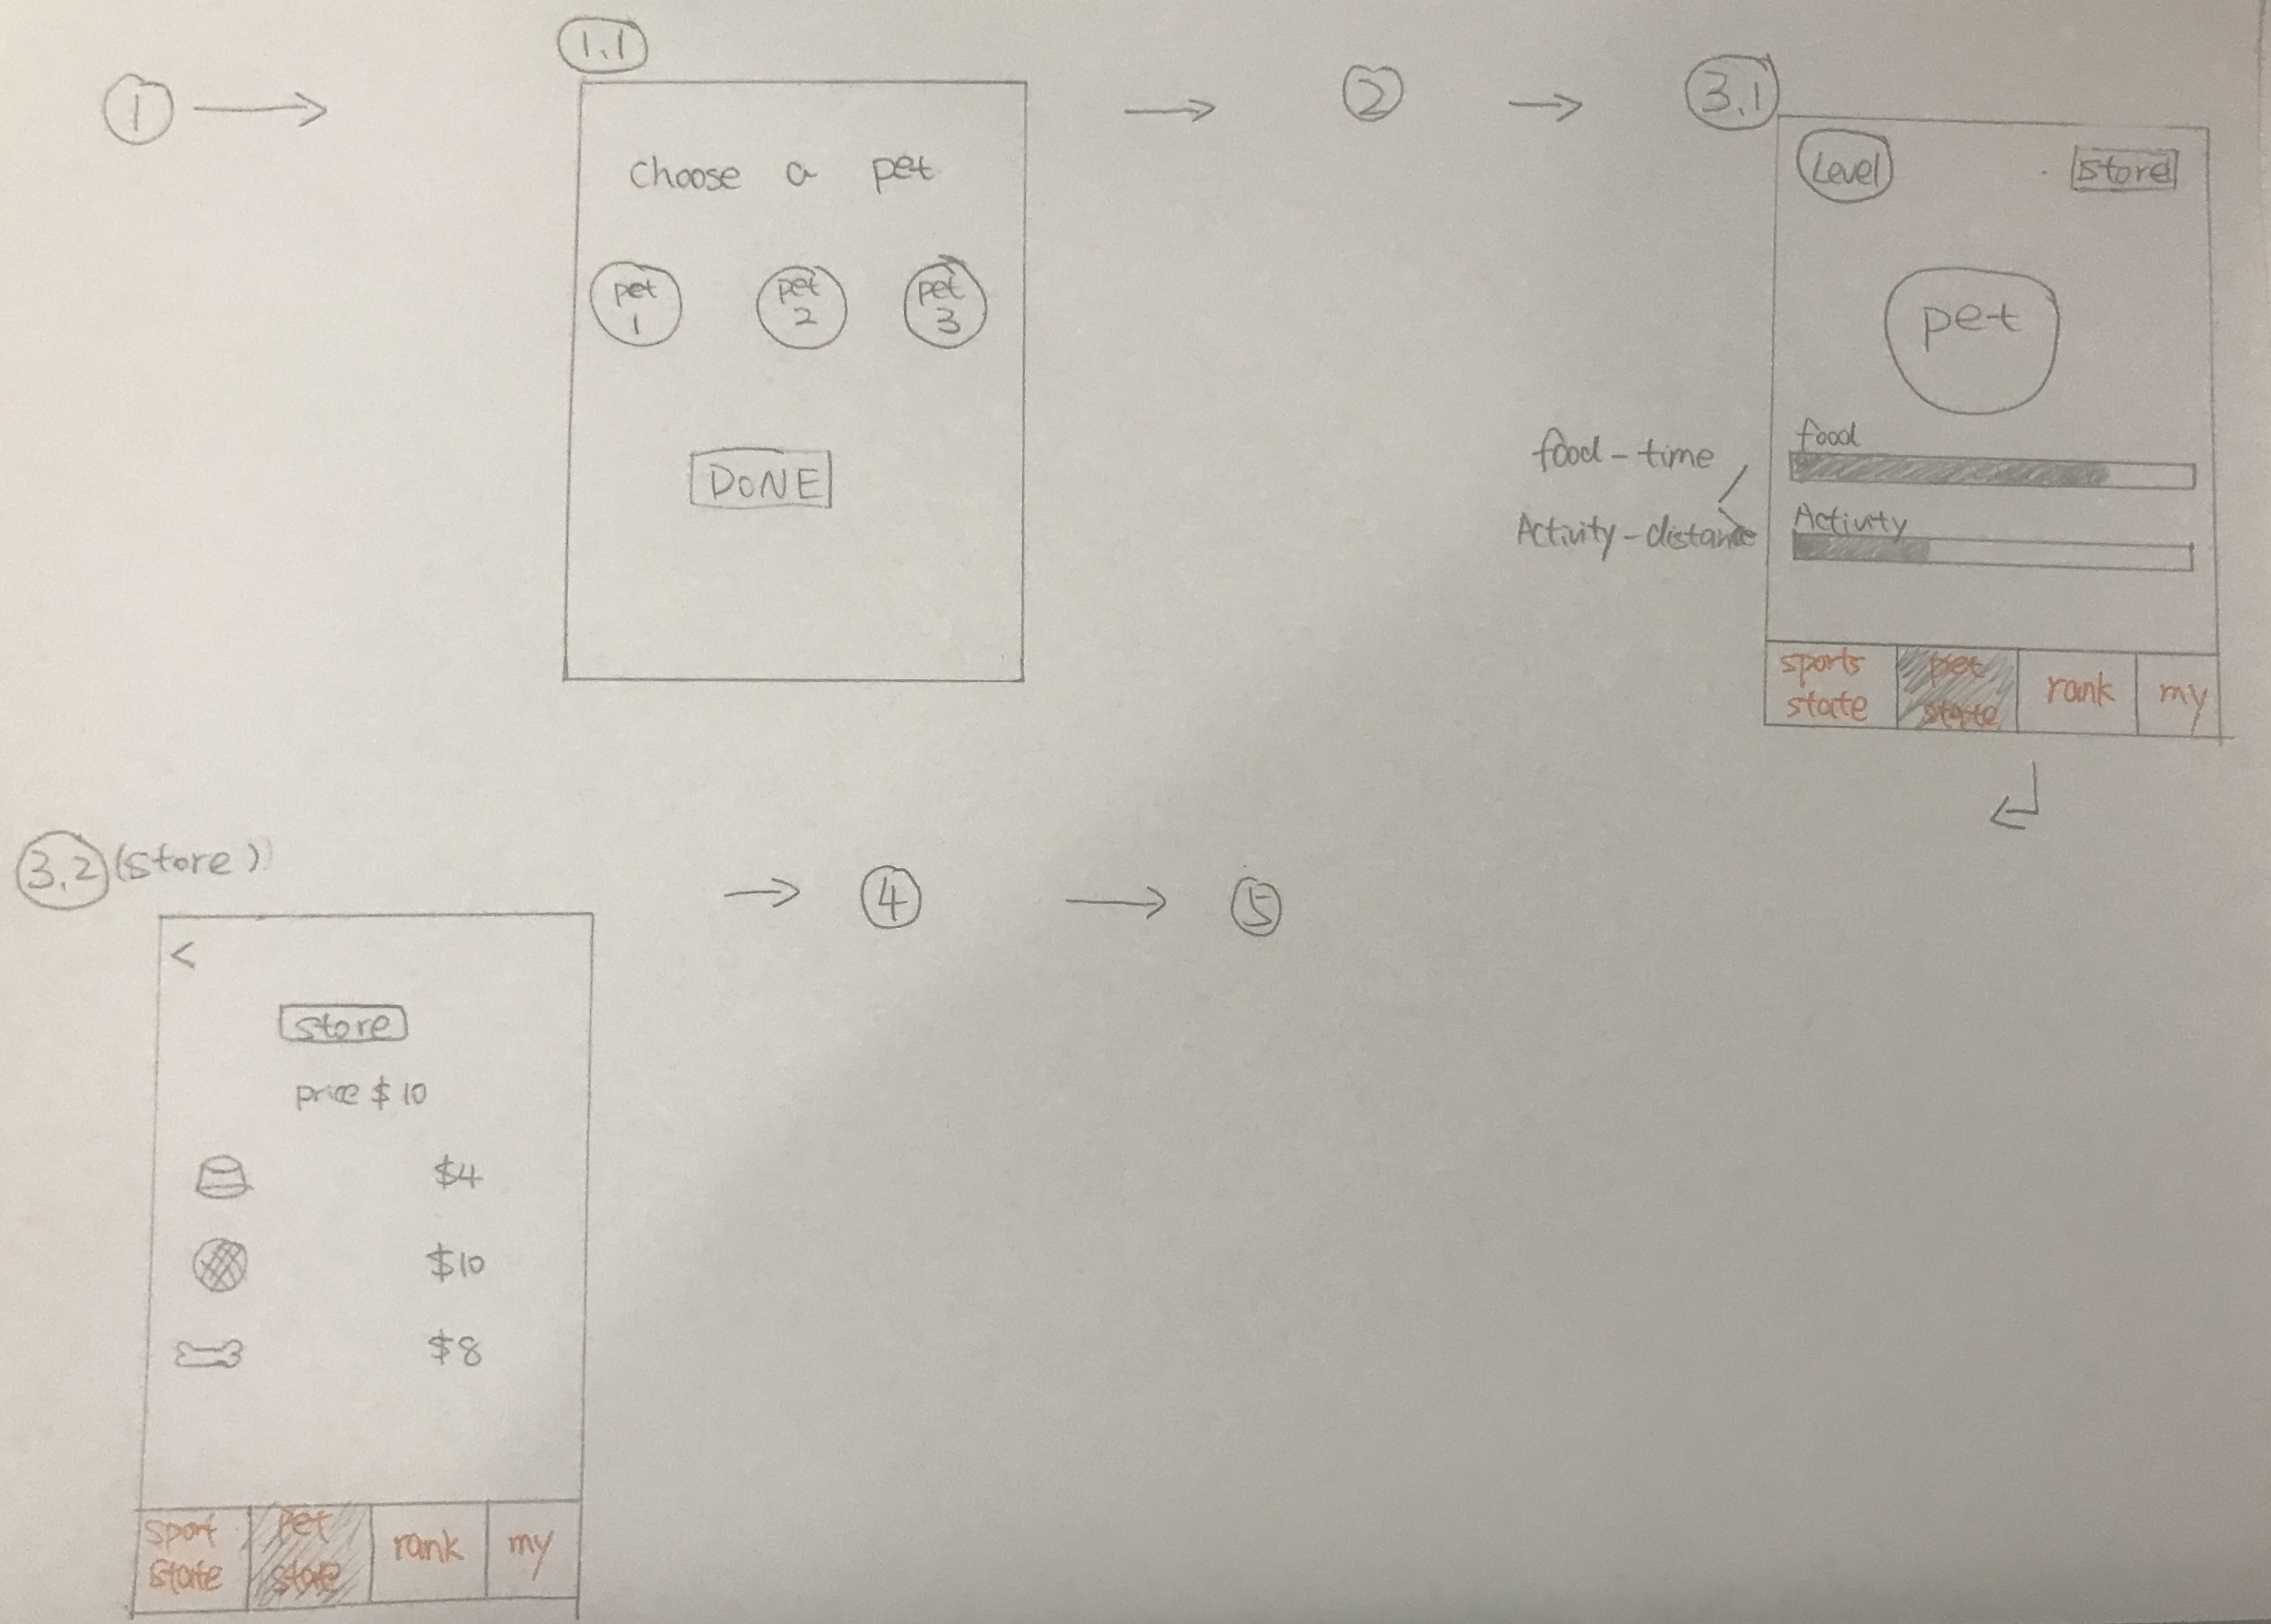 1
1.1
choose a pet
pet
1
pet
2
pet
3
DONE
2
3.1
Level
store
pet
food
food - time
Activity
Activity - distance
sports
state
pet
state
rank
my
3.2 (store)
<
store
price $10
$4
$10
$8
sport
state
pet
state
rank
my
4
5